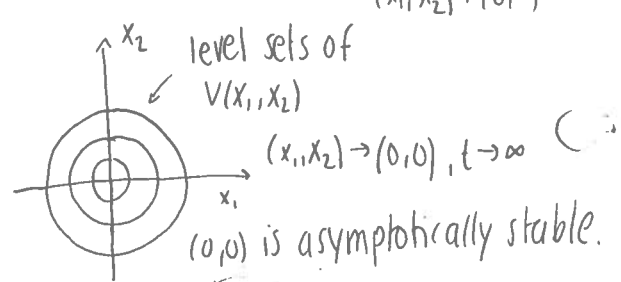 x₂
level sets of
V(x₁,x₂)
(x₁,x₂)→(0,0), t→∞
x₁
(0,0) is asymptotically stable.